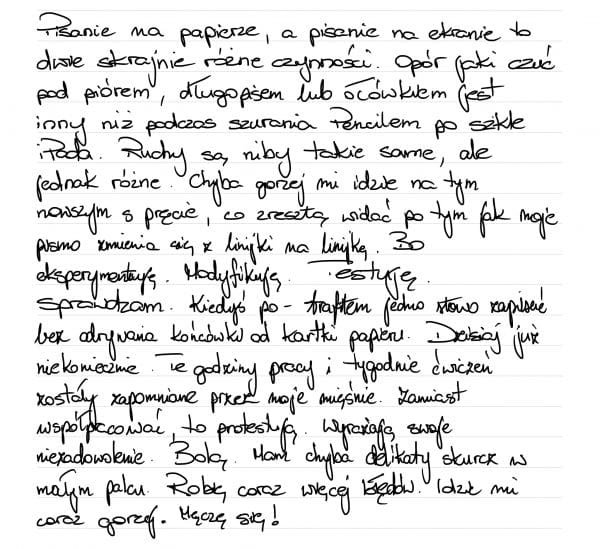 Pisanie na papierze, a pisanie na ekranie to
dwie skrajnie różne czynności. Opór jaki czuć
pod piórem, długopisem lub ołówkiem jest
inny niż podczas szurania Pencilem po szkle
iPada. Ruchy są niby takie same, ale
jednak różne. Chyba gorzej mi idzie na tym
nowszym sprzęcie, co zresztą widać po tym jak moje
pismo zmienia się z linijki na linijkę. Bo
eksperymentuję. Modyfikuję. Testuję.
Sprawdzam. Kiedyś po- trafiłem jedno słowo zapisać
bez odrywania końcówki od kartki papieru. Dzisiaj już
niekoniecznie. Te godziny pracy i tygodnie ćwiczeń
zostały zapomniane przez moje mięśnie. Zamiast
współpracować, to protestują. Wyrażają swoje
niezadowolenie. Bolą. Mam chyba delikaty skurcz w
małym palcu. Robię coraz więcej błędów. Idzie mi
coraz gorzej. Męczę się!